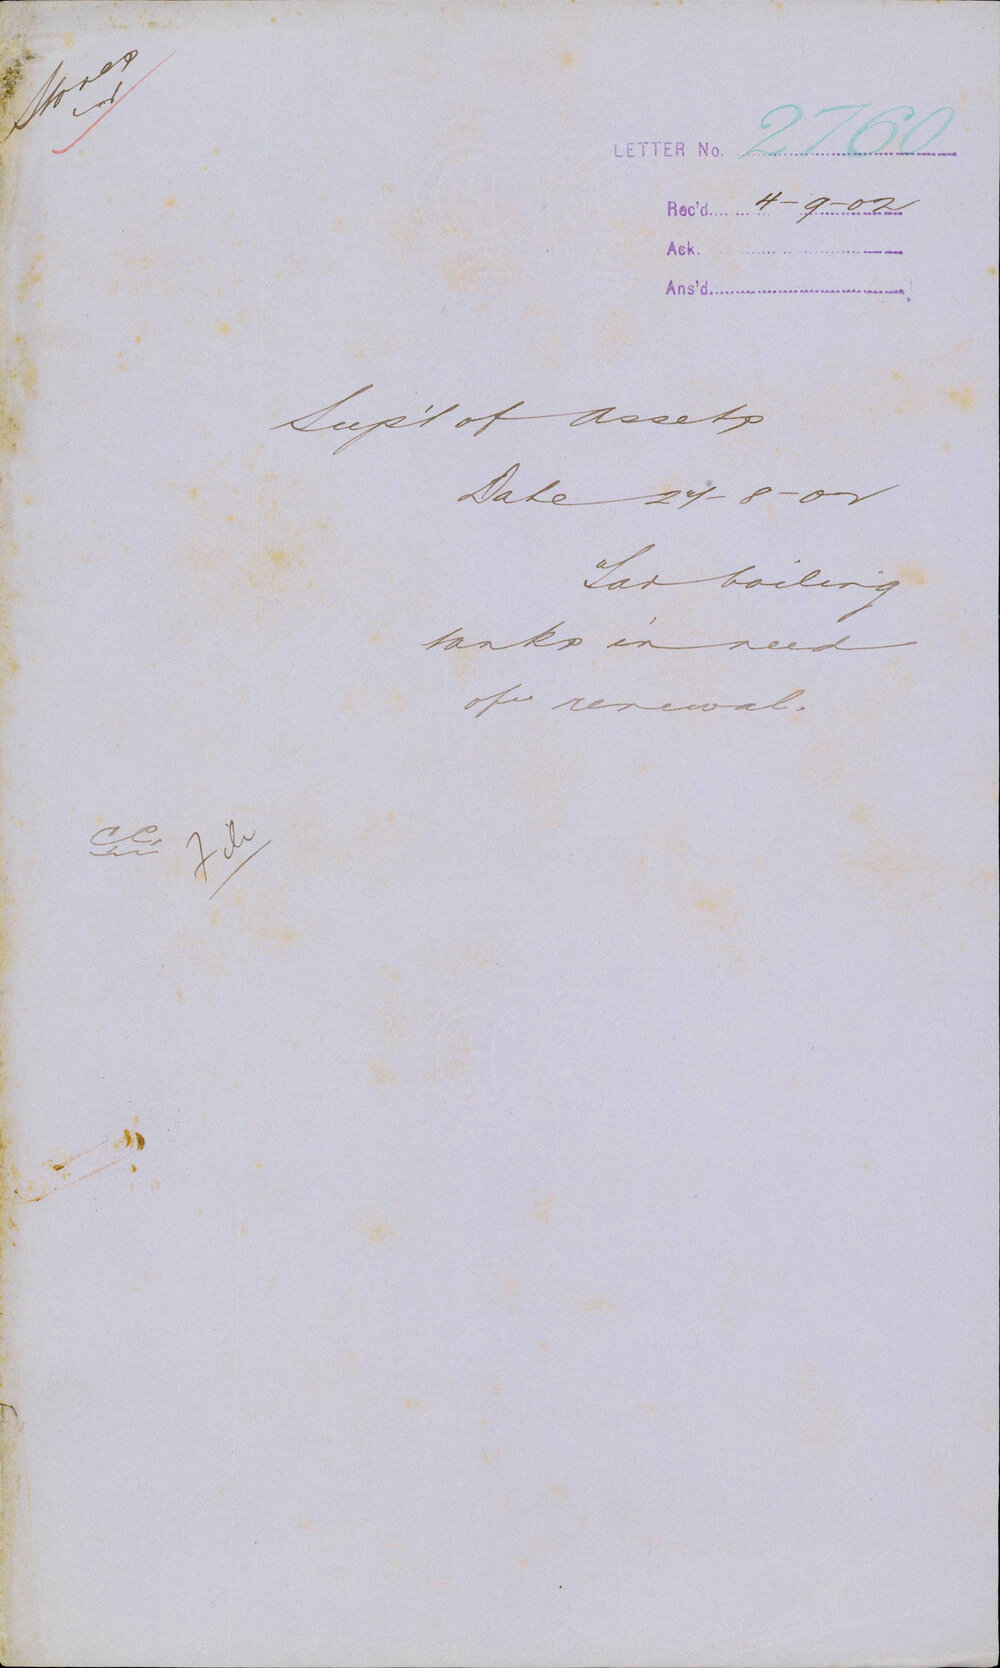 Stores
LETTER No. 2760
Rec'd. 4-9-02
Ack.
Ans'd.
Sup't of Assets
Date 27-8-02
Tar boiling
tanks in need
of renewal.
C.C. File